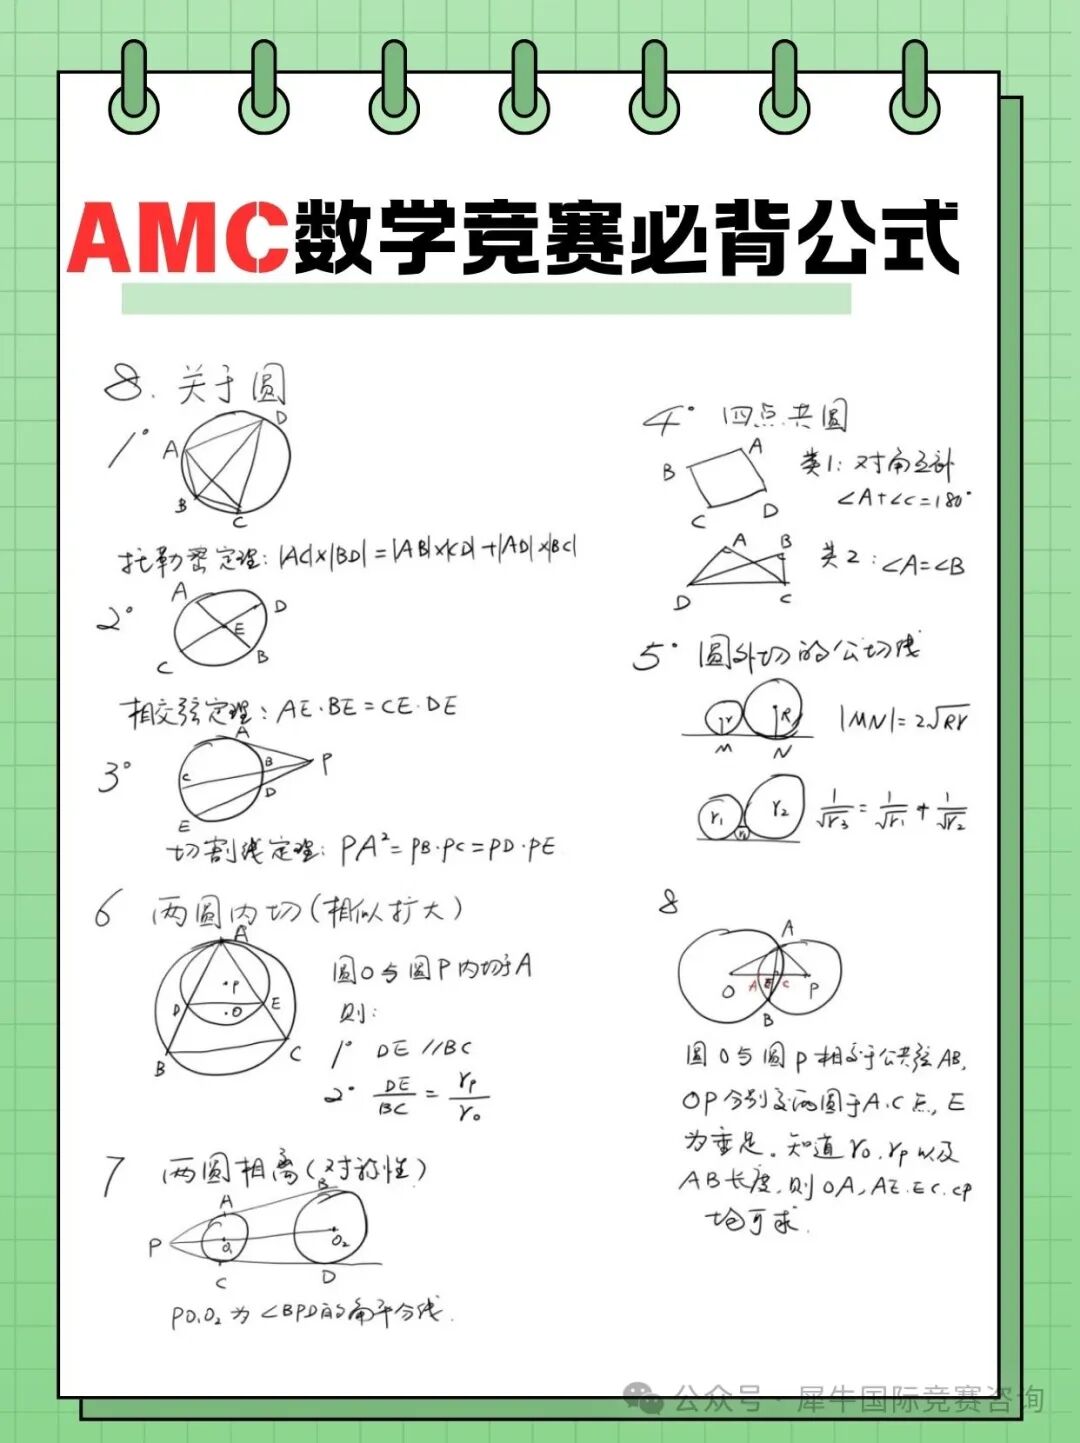 AMC数学竞赛必背公式
8. 关于圆
1°
A
D
B
C
托勒密定理: |AC|×|BD|=|AB|×|CD|+|AD|×|BC|
2°
A
D
E
C
B
相交弦定理: AE·BE=CE·DE
3°
A
B
P
C
D
E
切割线定理: PA²=PB·PC=PD·PE
4° 四点共圆
A
B
C
D
类1: 对角互补
∠A+∠C=180°
A
B
D
C
类2: ∠A=∠B
5° 圆外切的公切线
r
R
M
N
|MN|=2√Rr
r₁
r₂
r₃
1/√r₃=1/√r₁+1/√r₂
6 两圆内切(相似扩大)
A
P
D
O
E
B
C
圆O与圆P内切于A
则:
1° DE//BC
2° DE/BC=rₚ/r₀
7 两圆相离(对称性)
A
B
P
O₁
O₂
C
D
PO₁O₂为∠BPD的角平分线.
8
A
O
A
E
C
P
B
圆O与圆P相交于公共弦AB,
OP分别交两圆于A.C点, E
为垂足。知道r₀.rₚ以及
AB长度,则OA,AE.EC.CP
均可求.
公众号·犀牛国际竞赛咨询